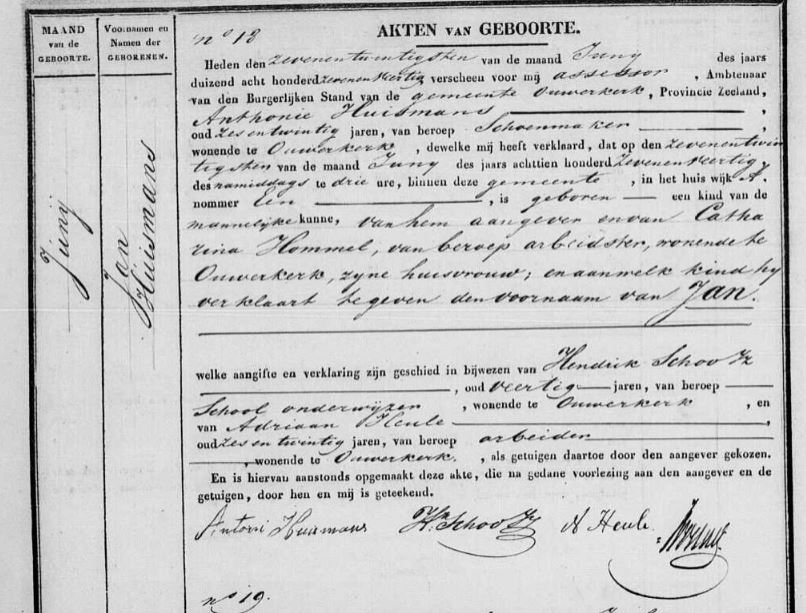 MAAND
van de
GEBOORTE.
Voornamen en
Namen der
GEBORENEN.
Juny
Jan
Huismans
AKTEN VAN GEBOORTE.
no 18
Heden den zevenentwintigsten van de maand Juny des jaars
duizend acht honderd zevenenveertig verscheen voor mij assessor, Ambtenaar
van den Burgerlijken Stand van de gemeente Ouwerkerk, Provincie Zeeland,
Anthonie Huismans,
oud zesentwintig jaren, van beroep Schoenmaker,
wonende te Ouwerkerk, dewelke mij heeft verklaard, dat op den zevenentwin
tigsten van de maand Juny des jaars achttien honderd zevenenveertig,
des namiddags te drie ure, binnen deze gemeente, in het huis wijk A.
nommer Een, is geboren een kind van de
mannelijke kunne, van hem aangever en van Catha
rina Hommel, van beroep arbeidster, wonende te
Ouwerkerk, zyne huisvrouw; en aan welk kind hy
verklaart te geven den voornaam van Jan.
welke aangifte en verklaring zijn geschied in bijwezen van Hendrik Schoo
, oud veertig jaren, van beroep
School onderwijzer, wonende te Ouwerkerk, en
van Adriaan Heule,
oud zesentwintig jaren, van beroep arbeider
, wonende te Ouwerkerk., als getuigen daartoe door den aangever gekozen.
En is hiervan aanstonds opgemaakt deze akte, die na gedane voorlezing aan den aangever en de
getuigen, door hen en mij is geteekend.
Antoni Huismans Hk Schoo A Heule
no 19.